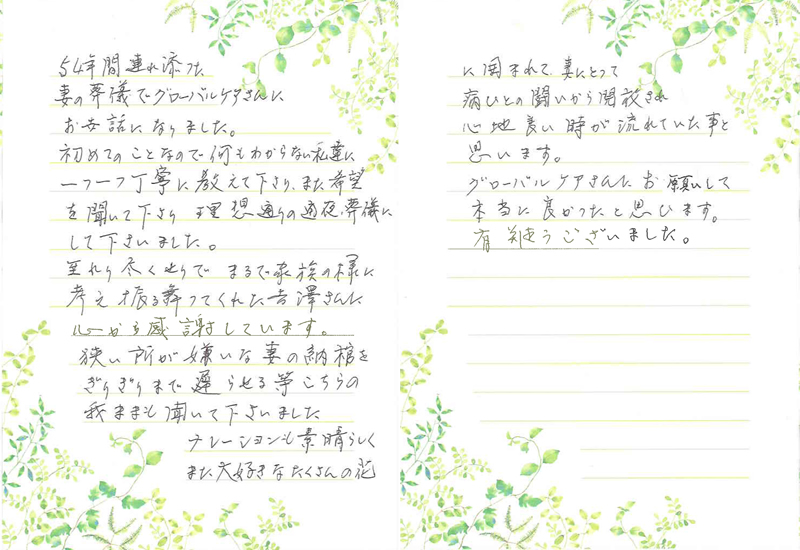 54年間連れ添った
妻の葬儀でグローバルケアさんに
お世話になりました。
初めてのことなので何もわからない私達に
一つ一つ丁寧に教えて下さり、また希望
を聞いて下さり 理想通りの通夜、葬儀に
して下さいました。
至れり尽くせりで まるで家族の様に
考え 振る舞ってくれた吉澤さんに
心から感謝しています。
狭い所が嫌いな妻の納棺を
ぎりぎりまで遅らせる等こちらの
我ままも聞いて下さいました
ナレーションも素晴らしく
また大好きなたくさんの花
に囲まれて 妻にとって
病ひとの闘いから開放され
心地良い時が流れていた事と
思います。
グローバルケアさんにお願いして
本当に良かったと思ひます。
有難うございました。